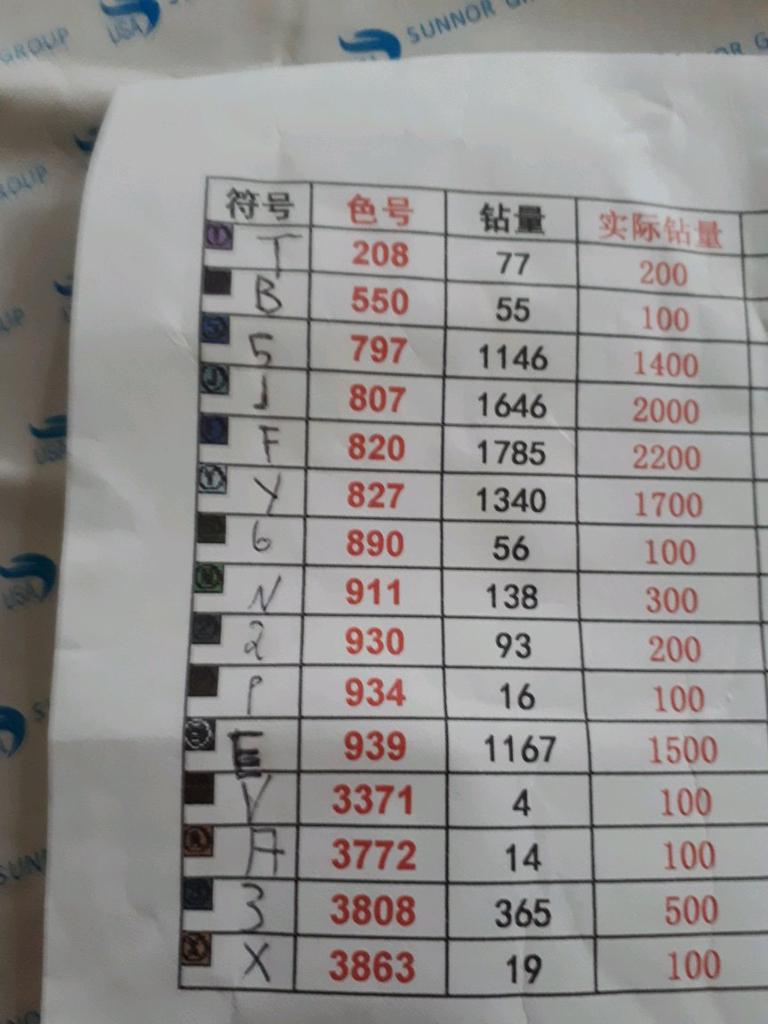 GROUP
USA
SUNNOR GR
SUNNOR G
GROUP
USA
USA
SUNN
符号 色号 钻量 实际钻量
T 208 77 200
B 550 55 100
5 797 1146 1400
J J 807 1646 2000
F 820 1785 2200
Y Y 827 1340 1700
6 890 56 100
N N 911 138 300
2 930 93 200
P 934 16 100
E 939 1167 1500
V 3371 4 100
A A 3772 14 100
3 3808 365 500
X X 3863 19 100